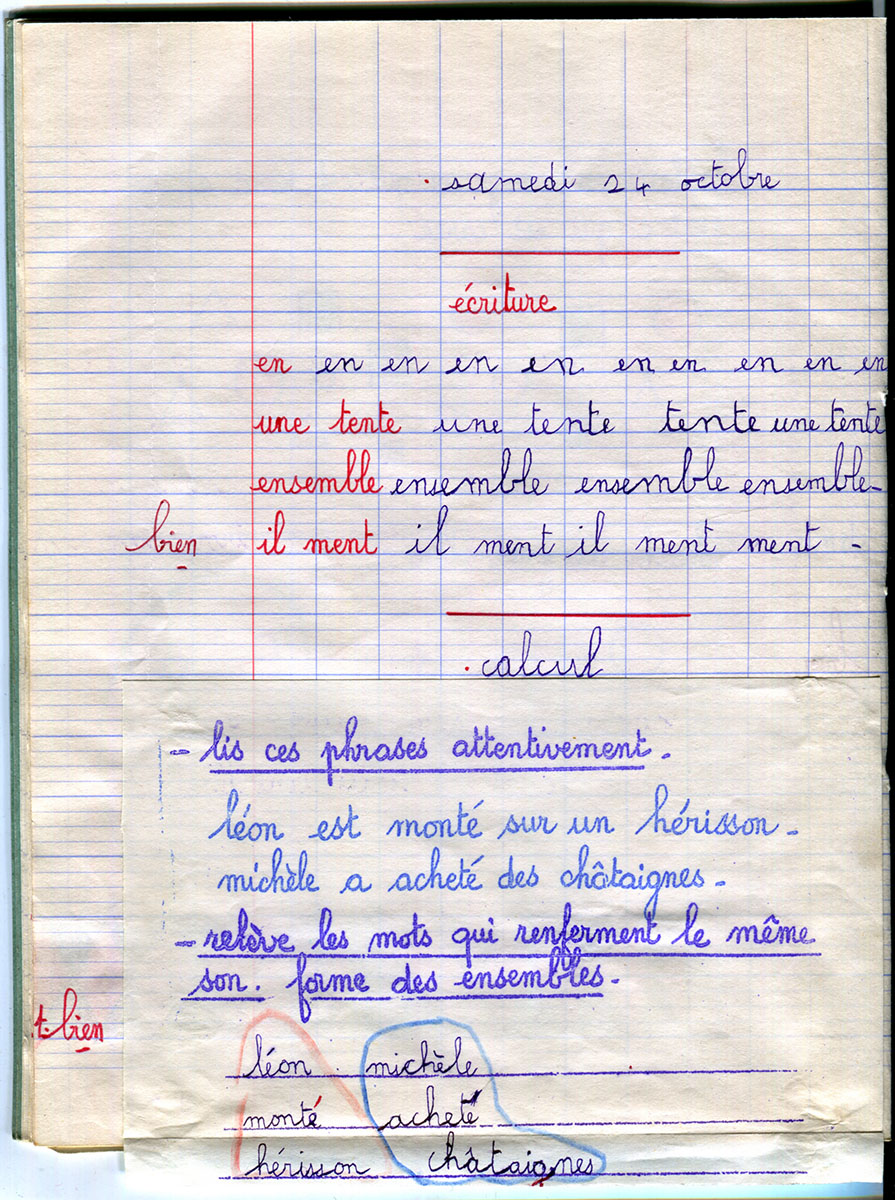 samedi 24 octobre
écriture
en en en en en en en en en en
une tente une tente tente une tente
ensemble ensemble ensemble ensemble-
bien il ment il ment il ment ment -
calcul
- lis ces phrases attentivement.
léon est monté sur un hérisson.
michèle a acheté des châtaignes.
- relève les mots qui renferment le même
son. forme des ensembles.
t. bien
léon michèle
monté acheté
hérisson châtaignes